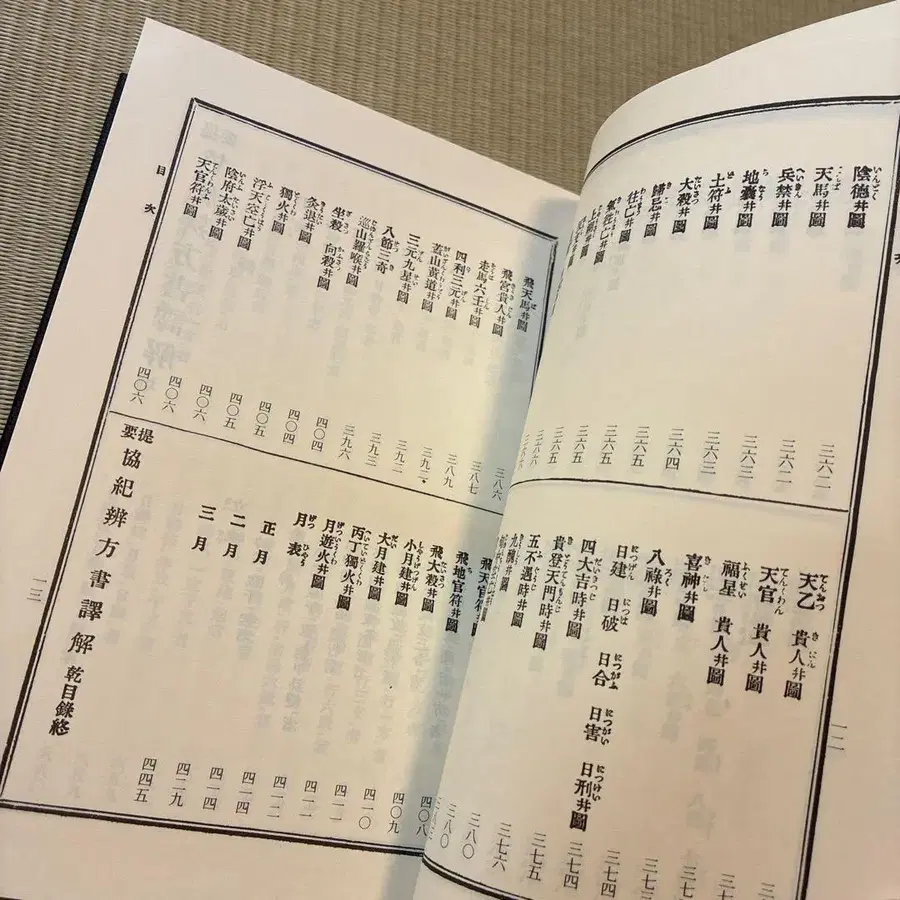 陰德井圖 三六二
天馬井圖 三六二
兵禁井圖 三六三
地囊井圖 三六三
土符井圖 三六四
大殺井圖 三六五
歸忌井圖 三六五
往亡井圖 三六五
氣往亡井圖 三六六
天乙貴人井圖
天官貴人井圖
福星貴人井圖
喜神井圖
八祿井圖
日建 日破 日合 日害 日刑井圖 三七四
四大吉時井圖 三七四
貴登天門時井圖 三七五
五不遇時井圖 三七六
九醜井圖 三八〇
一二
目次
飛天馬井圖
飛宮貴人井圖 三八六
走馬六壬井圖 三八七
四利三元井圖 三八九
蓋山黃道井圖 三九二
三元九星井圖 三九三
八節三奇 三九六
巡山羅睺井圖 四〇四
坐殺 向殺井圖 四〇四
灸退井圖 四〇五
獨火井圖 四〇五
浮天空亡井圖 四〇六
陰府太歲井圖 四〇六
天官符井圖 四〇六
飛天官符井圖
飛地官符井圖 四〇八
飛大殺井圖 四〇九
小月建井圖 四一〇
大月建井圖 四一一
丙丁獨火井圖 四一一
月遊火井圖 四一二
月表 四一四
正月 四一四
二月 四二九
三月 四四五
提要協紀辨方書譯解 乾目錄終
一三